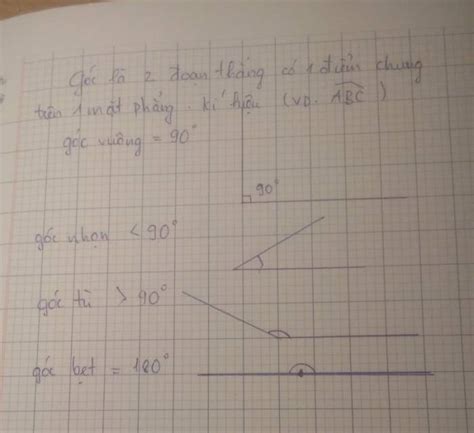 góc là 2 đoan thẳng có 1 điểm chung
trên 1 mặt phẳng. kí hiệu (VD. ABC)
góc vuông = 90°
90°
góc nhọn < 90°
góc tù > 90°
góc bẹt = 180°